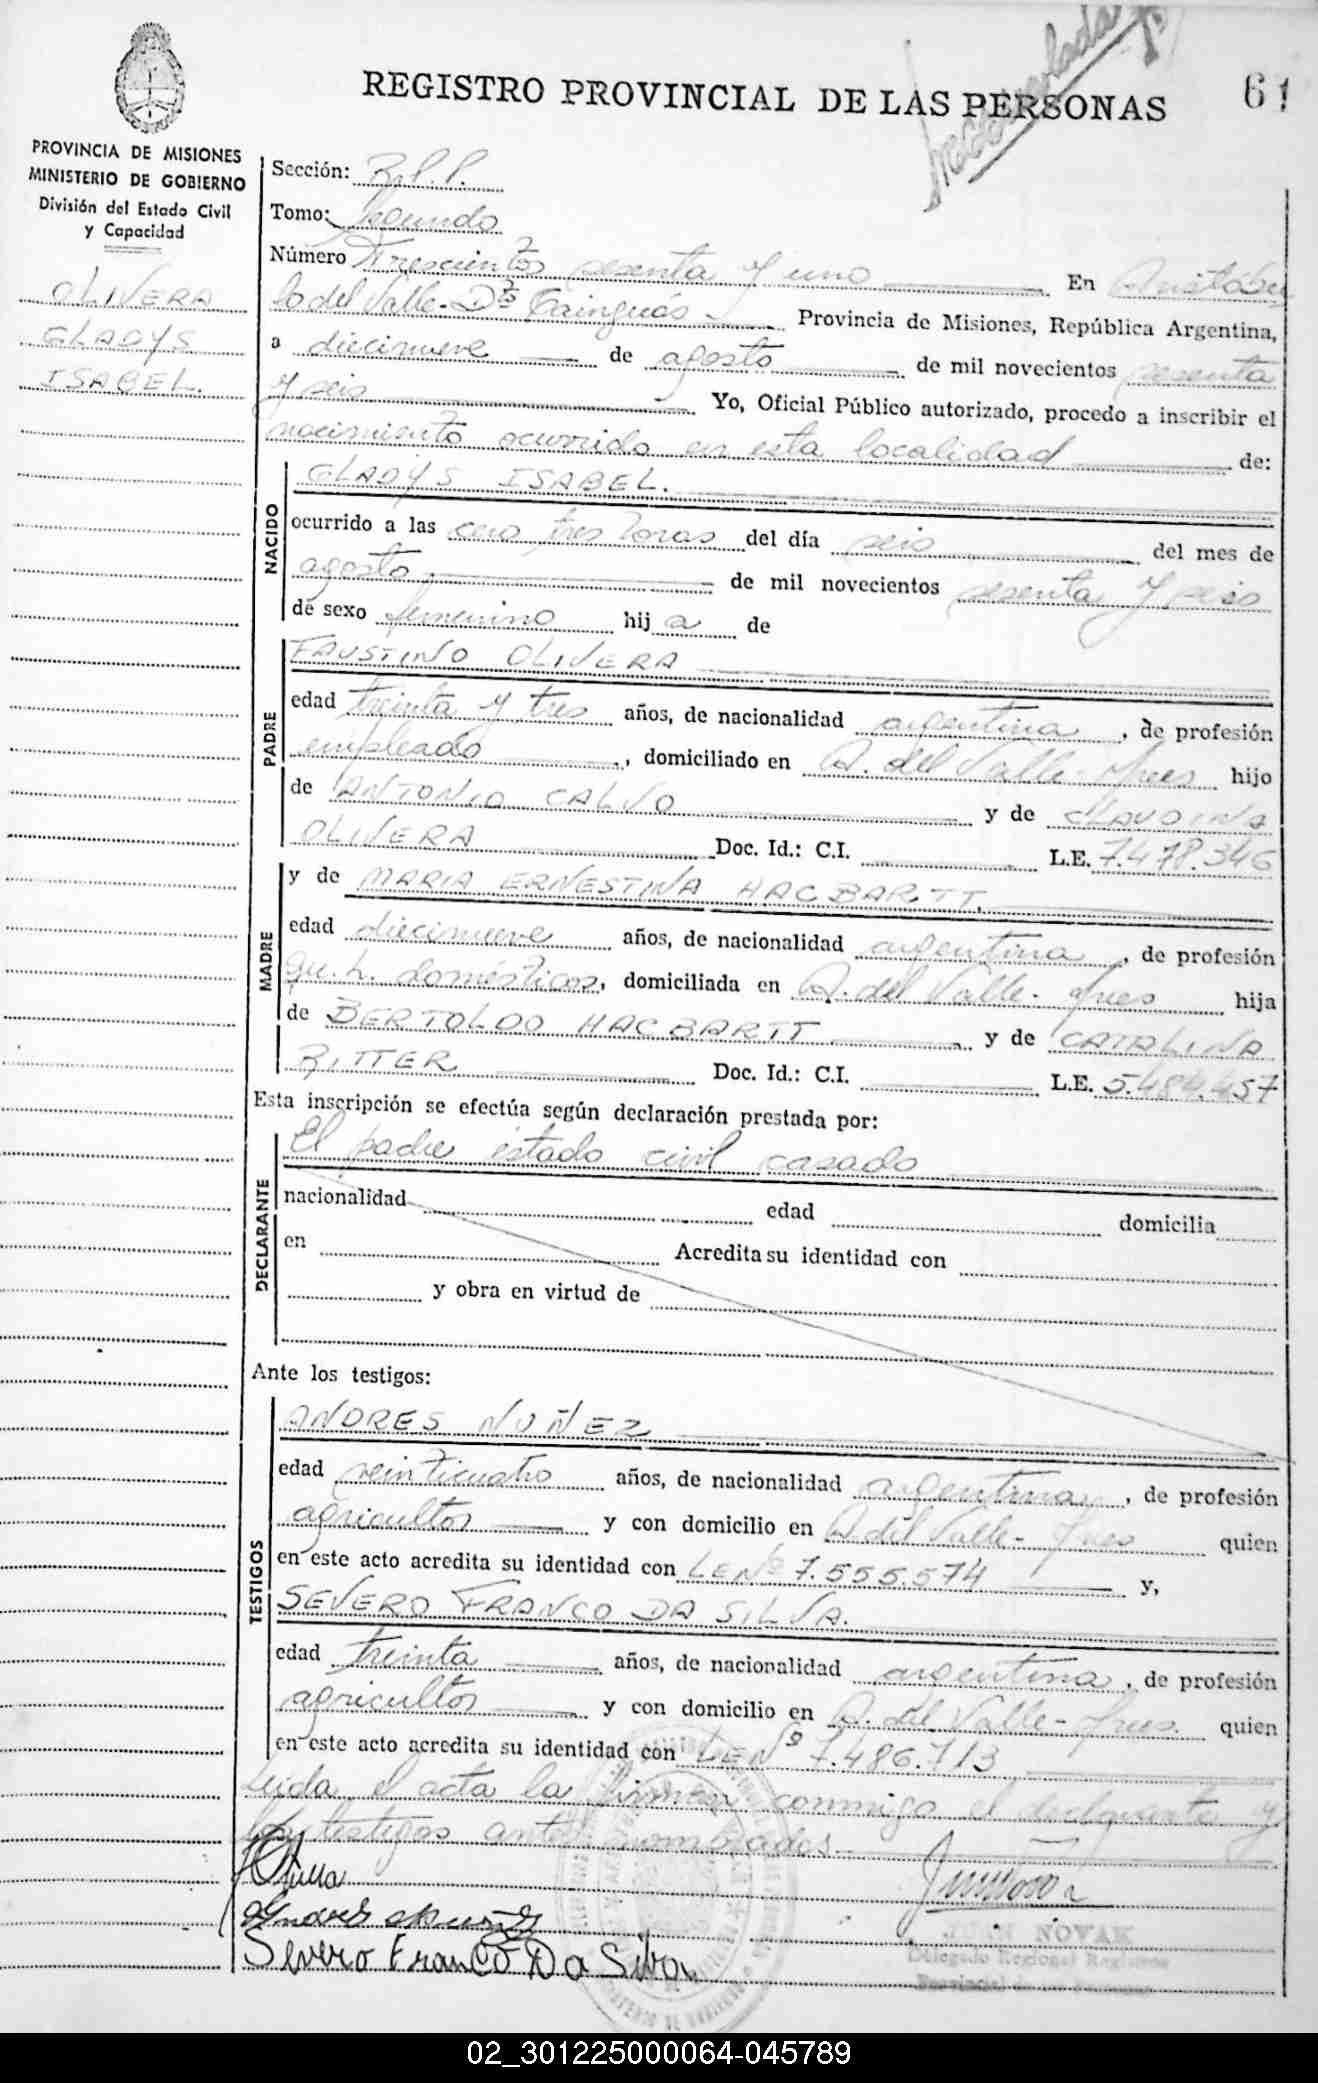 REGISTRO PROVINCIAL DE LAS PERSONAS
61
PROVINCIA DE MISIONES
MINISTERIO DE GOBIERNO
División del Estado Civil
y Capacidad
OLIVERA
GLADYS
ISABEL.
Sección:
Tomo: Segundo
Número Trescientos sesenta y uno En Aristóbu
lo del Valle- Dto Cainguás Provincia de Misiones, República Argentina,
a diecinueve de agosto de mil novecientos sesenta
y seis Yo, Oficial Público autorizado, procedo a inscribir el
nacimiento ocurrido en esta localidad de:
NACIDO
GLADYS ISABEL.
ocurrido a las cero tres horas del día seis del mes de
agosto de mil novecientos sesenta y seis
de sexo femenino hij a de
PADRE
FAUSTINO OLIVERA
edad treinta y tres años, de nacionalidad argentina, de profesión
empleado, domiciliado en A. del Valle- hijo
de ANTONIO CALVO y de CLAUDINA
OLIVERA Doc. Id.: C.I. L.E. 7.478.346
MADRE
y de MARIA ERNESTINA HACBARTT,
edad diecinueve años, de nacionalidad argentina, de profesión
qu. h. domésticos, domiciliada en A. del Valle- hija
de BERTOLDO HACBARTT y de CATALINA
RITTER Doc. Id.: C.I. L.E. 5.484.457
Esta inscripción se efectúa según declaración prestada por:
DECLARANTE
El padre estado civil casado
nacionalidad edad domicilia
en Acredita su identidad con
y obra en virtud de
Ante los testigos:
TESTIGOS
ANDRES NUÑEZ
edad veinticuatro años, de nacionalidad argentina, de profesión
agricultor y con domicilio en A. del Valle- quien
en este acto acredita su identidad con LE Nº 7.555.574 y,
SEVERO FRANCO DA SILVA.
edad treinta años, de nacionalidad argentina, de profesión
agricultor y con domicilio en A. del Valle- quien
en este acto acredita su identidad con LE Nº 7.486.713
Leida el acta la firman conmigo el declarante y
los testigos antes nombrados.
Andres Nuñez
Severo Franco Da Silva
JUAN NOVAK
Delegado Regional Registro
Provincial de las Personas
02_301225000064-045789